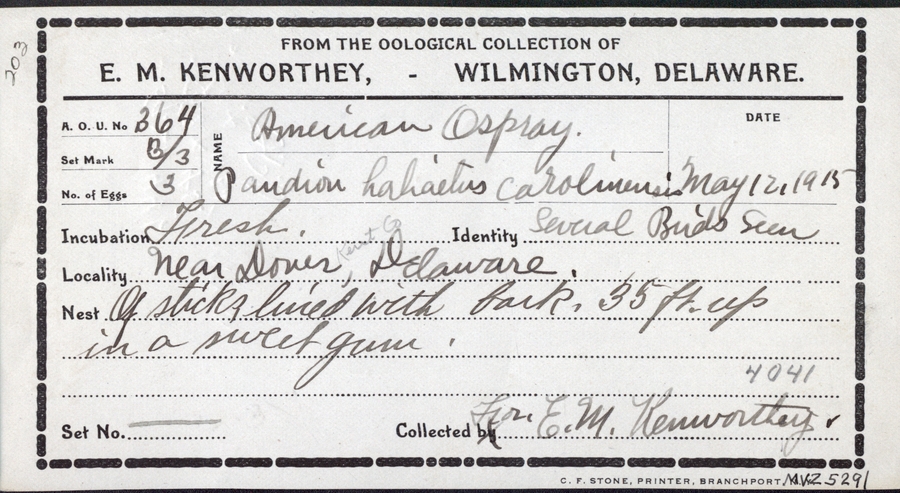 203
FROM THE OOLOGICAL COLLECTION OF
E. M. KENWORTHEY, - WILMINGTON, DELAWARE.
A. O. U. No 364
NAME American Ospray.
DATE
Set Mark B/3
No. of Eggs 3
Pandion haliaetus carolinensis May 12, 1915
Incubation Fresh. Identity Several Birds Seen
Kent Co
Locality Near Dover, Delaware.
Nest Of sticks, lined with bark, 35 ft. up
in a sweet gum.
4041
Set No. Collected by For. E. M. Kenworthey.
C. F. STONE, PRINTER, BRANCHPORT,
MVZ 5291